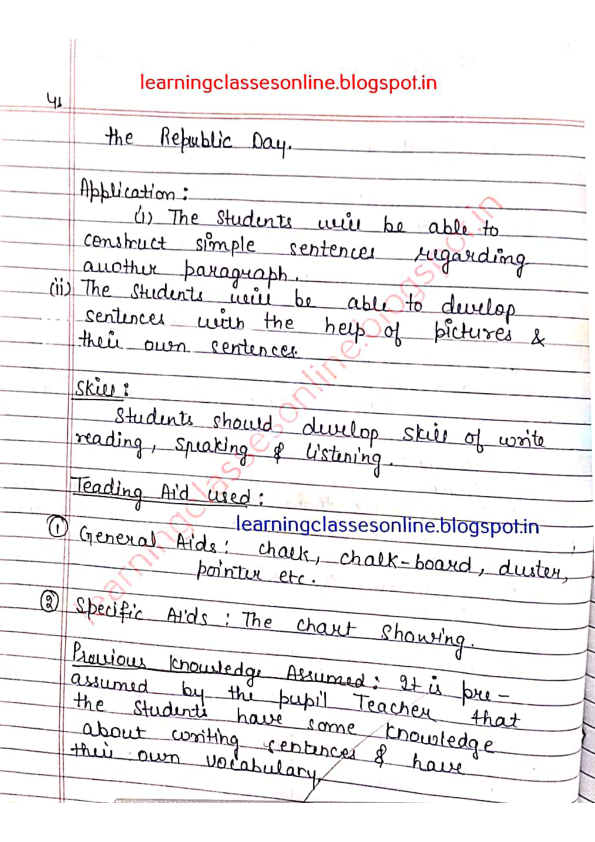 learningclassesonline.blogspot.in
4
the Republic Day.
Application :
(i) The students will be able to
construct simple sentences regarding
another paragraph.
(ii) The students will be able to develop
sentences with the help of pictures &
their own sentences.
Skill :
Students should develop skill of write
reading, speaking & listening.
Teading Aid used :
learningclassesonline.blogspot.in
① General Aids : chalk, chalk-board, duster,
pointer etc.
② Specific Aids : The chart showing.
Previous knowledge Assumed : It is pre-
assumed by the pupil Teacher that
the students have some knowledge
about writing sentences & have
their own vocabulary
learningclassesonline.blogspot.in